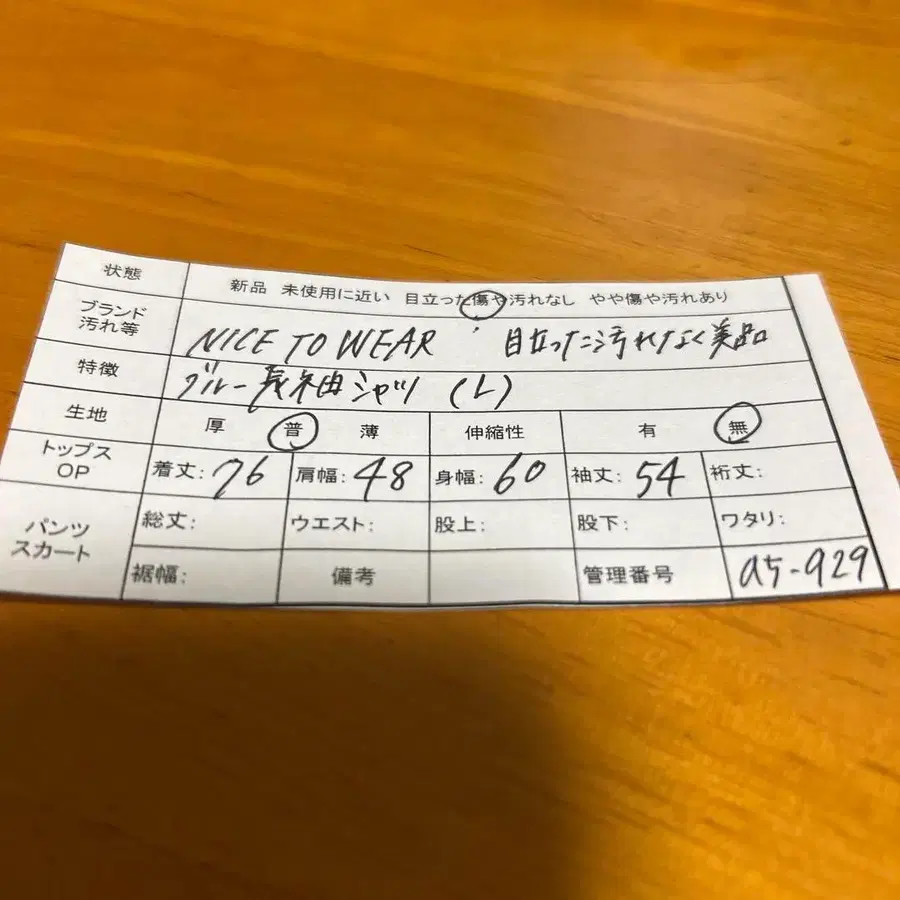 状態 新品 未使用に近い 目立った傷や汚れなし やや傷や汚れあり
ブランド 汚れ等 NICE TO WEAR 目立った汚れなく美品
特徴 ブルー長袖シャツ (L)
生地 厚 普 薄 伸縮性 有 無
トップス OP 着丈: 76 肩幅: 48 身幅: 60 袖丈: 54 裄丈:
パンツ スカート 総丈: ウエスト: 股上: 股下: ワタリ:
裾幅: 備考 管理番号 a5-929